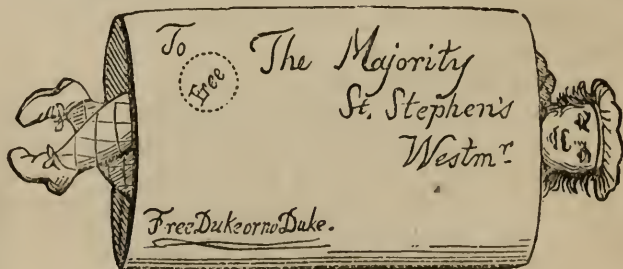 To
Free
The Majority
St. Stephen's
Westmr.
Free Duke or no Duke.